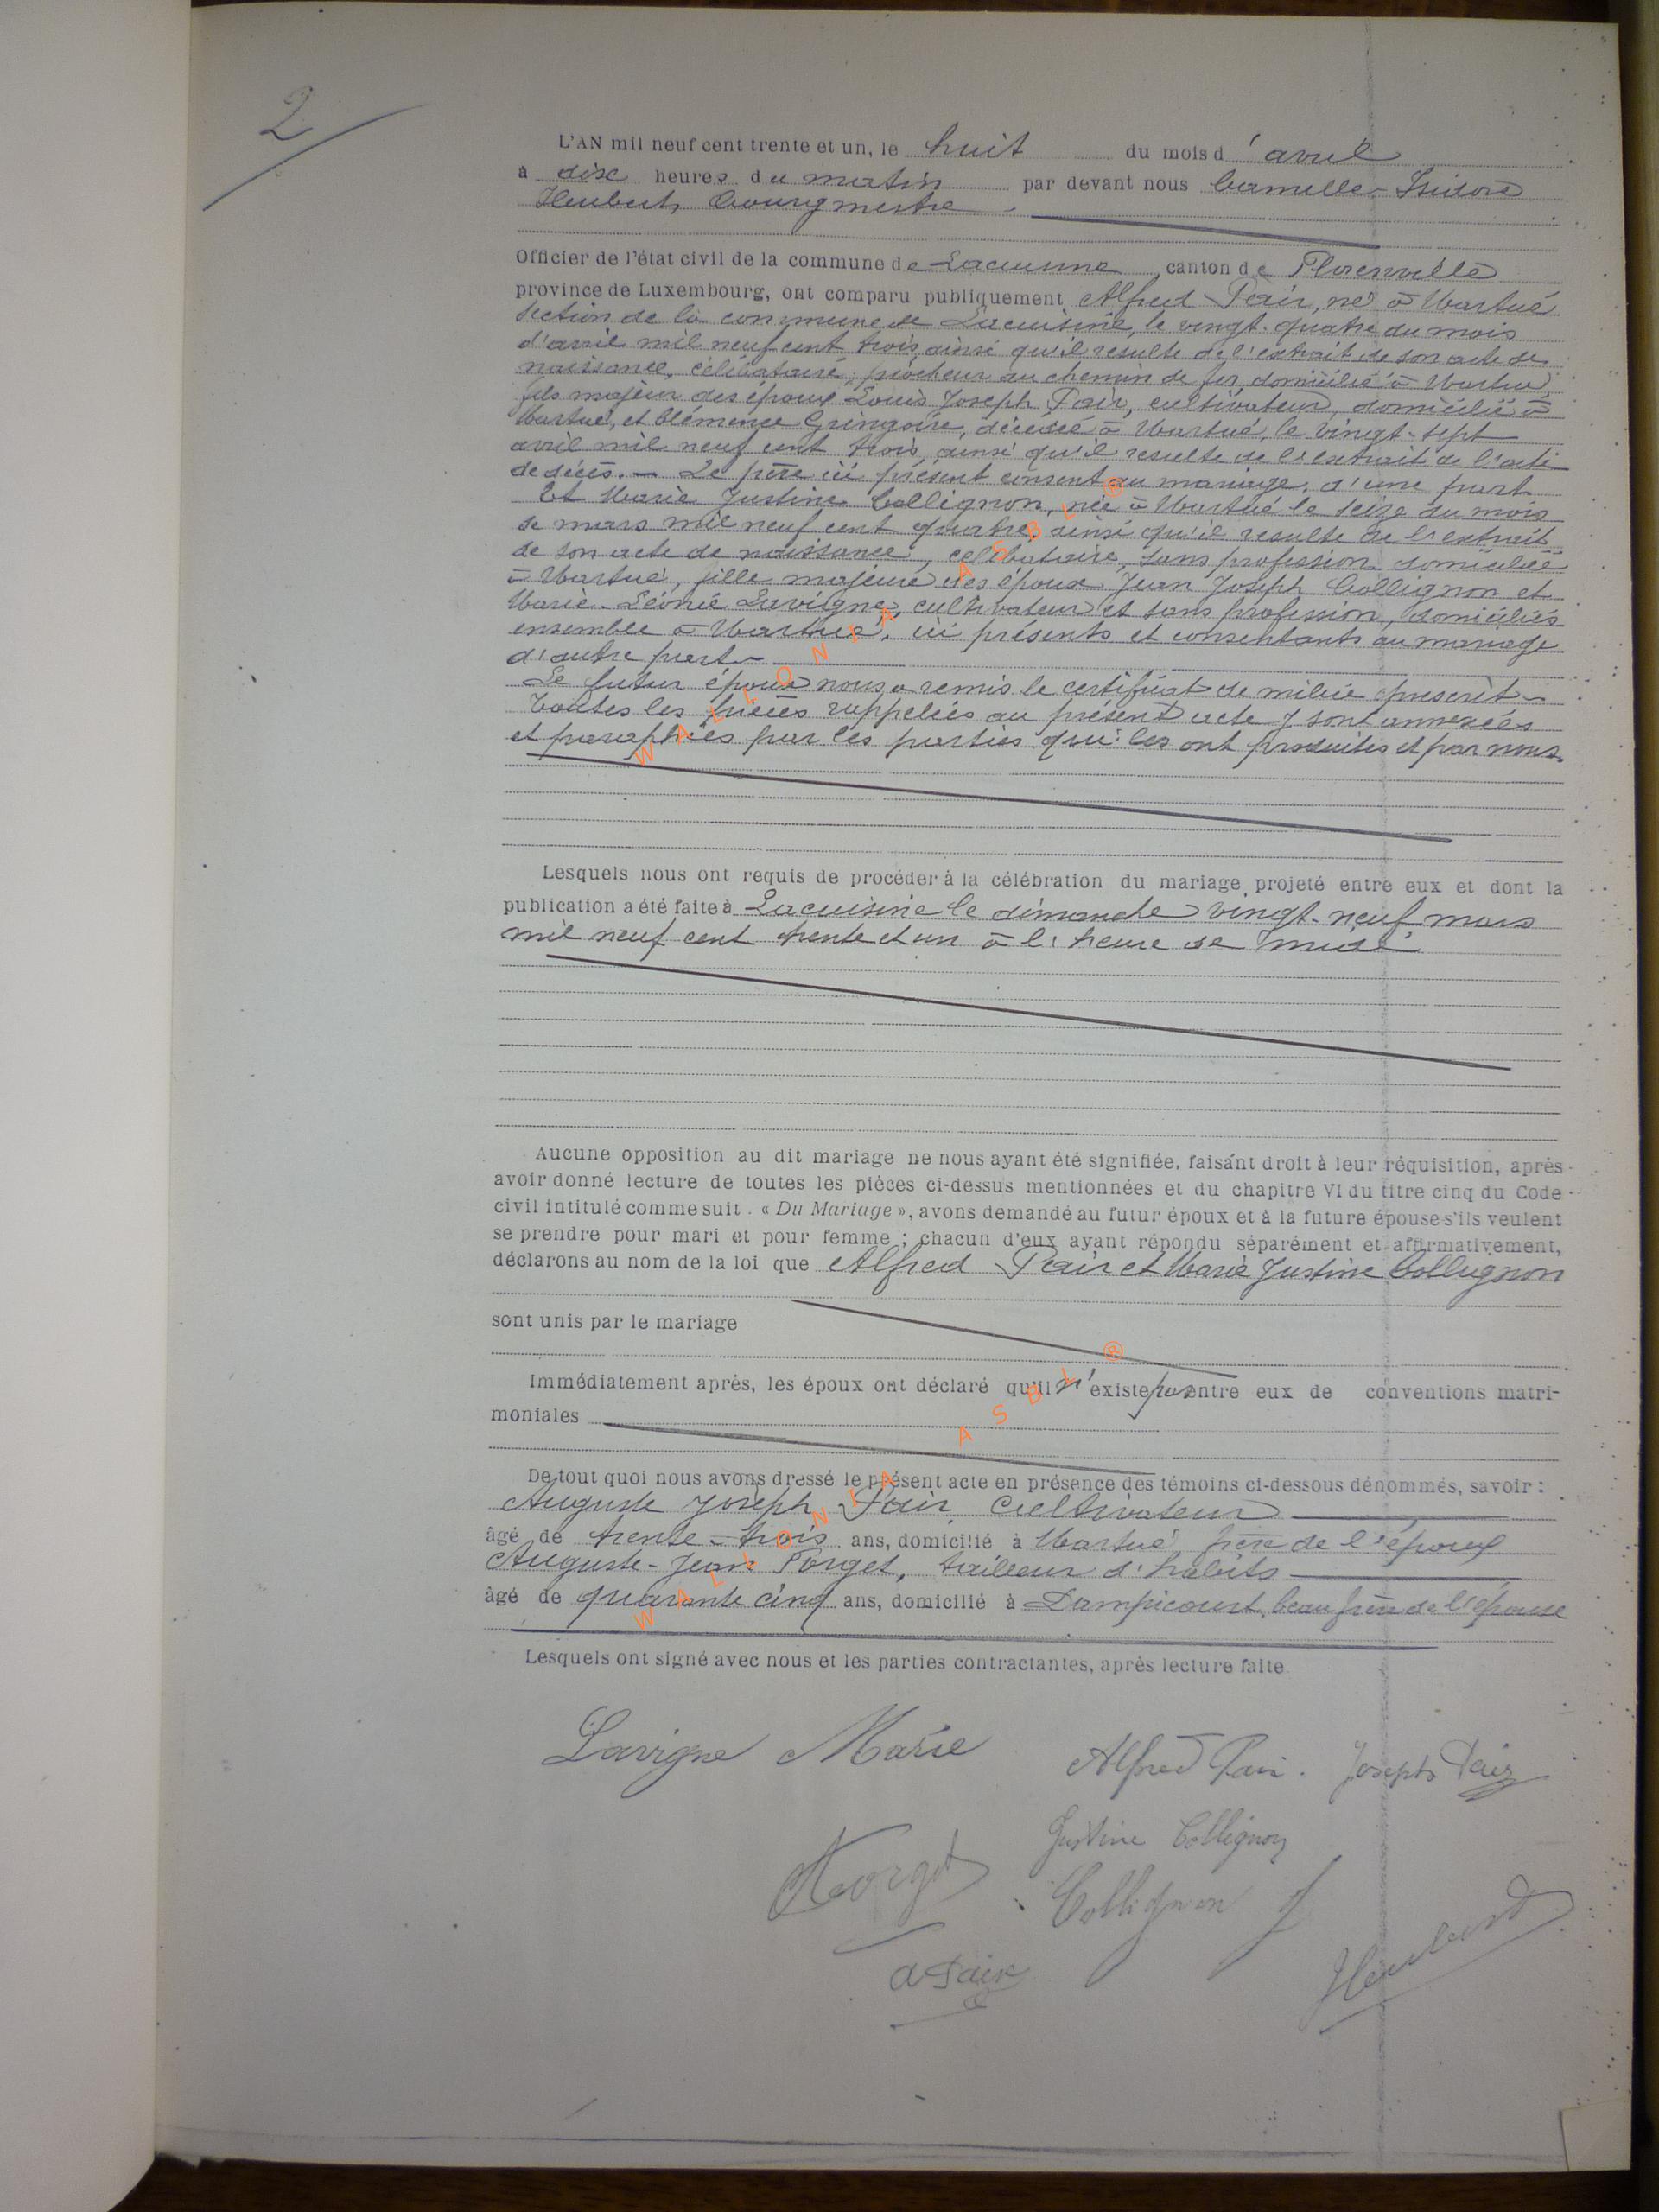 2
L'AN mil neuf cent trente et un, le huit du mois d'avril
à dix heures du matin par devant nous Camille-Isidore
Heubert, bourgmestre
Officier de l'état civil de la commune de Lacuisine, canton de Florenville
province de Luxembourg, ont comparu publiquement Alfred Pair, né à Martué
section de la commune de Lacuisine, le vingt-quatre du mois
d'avril mil neuf cent trois, ainsi qu'il resulte de l'extrait de son acte de
naissance, célibataire, piocheur au chemin de fer, domicilié à Martué,
fils majeur des époux Louis Joseph Pair, cultivateur, domicilié à
Martué, et Clémence Gringoire, décédée à Martué, le vingt-sept
avril mil neuf cent trois, ainsi qu'il resulte de l'extrait de l'acte
de décès. — Le père ici présent consent au mariage, d'une part
Et Marie Justine Collignon, née à Martué le seize du mois
de mars mil neuf cent quatre, ainsi qu'il resulte de l'extrait
de son acte de naissance, celibataire, sans profession domiciliée
à Martué, fille majeure des époux Jean Joseph Collignon et
Marie-Léonie Lavigne, cultivateur et sans profession, domiciliés
ensemble à Martué, ici présents et consentants au mariage
d'autre part
Le futur époux nous a remis le certificat de milice prescrit
Toutes les pièces rappelées au présent acte y sont annexées
et paraphées par les parties qui les ont produites et par nous
Lesquels nous ont requis de procéder à la célébration du mariage projeté entre eux et dont la
publication a été faite à Lacuisine le dimanche vingt-neuf mars
mil neuf cent trente et un à l'heure de midi
Aucune opposition au dit mariage ne nous ayant été signifiée, faisant droit à leur réquisition, après
avoir donné lecture de toutes les pièces ci-dessus mentionnées et du chapitre VI du titre cinq du Code
civil intitulé comme suit. « Du Mariage », avons demandé au futur époux et à la future épouse s'ils veulent
se prendre pour mari et pour femme ; chacun d'eux ayant répondu séparément et affirmativement,
déclarons au nom de la loi que Alfred Pair et Marie Justine Collignon
sont unis par le mariage
Immédiatement après, les époux ont déclaré qu'il n'existe pas entre eux de conventions matri-
moniales
De tout quoi nous avons dressé le présent acte en présence des témoins ci-dessous dénommés, savoir :
Auguste Joseph Pair, cultivateur
âgé de trente-trois ans, domicilié à Martué, frère de l'époux
Auguste-Jean Forget, tailleur d'habits
âgé de quarante cinq ans, domicilié à Dampicourt, beau frère de l'épouse
Lesquels ont signé avec nous et les parties contractantes, après lecture faite.
Lavigne Marie Alfred Pair. Joseph Pair
Justine Collignon
AForget
Collignon J
A Pair
Heubert
WALLONIA ASBL ®
WALLONIA ASBL ®